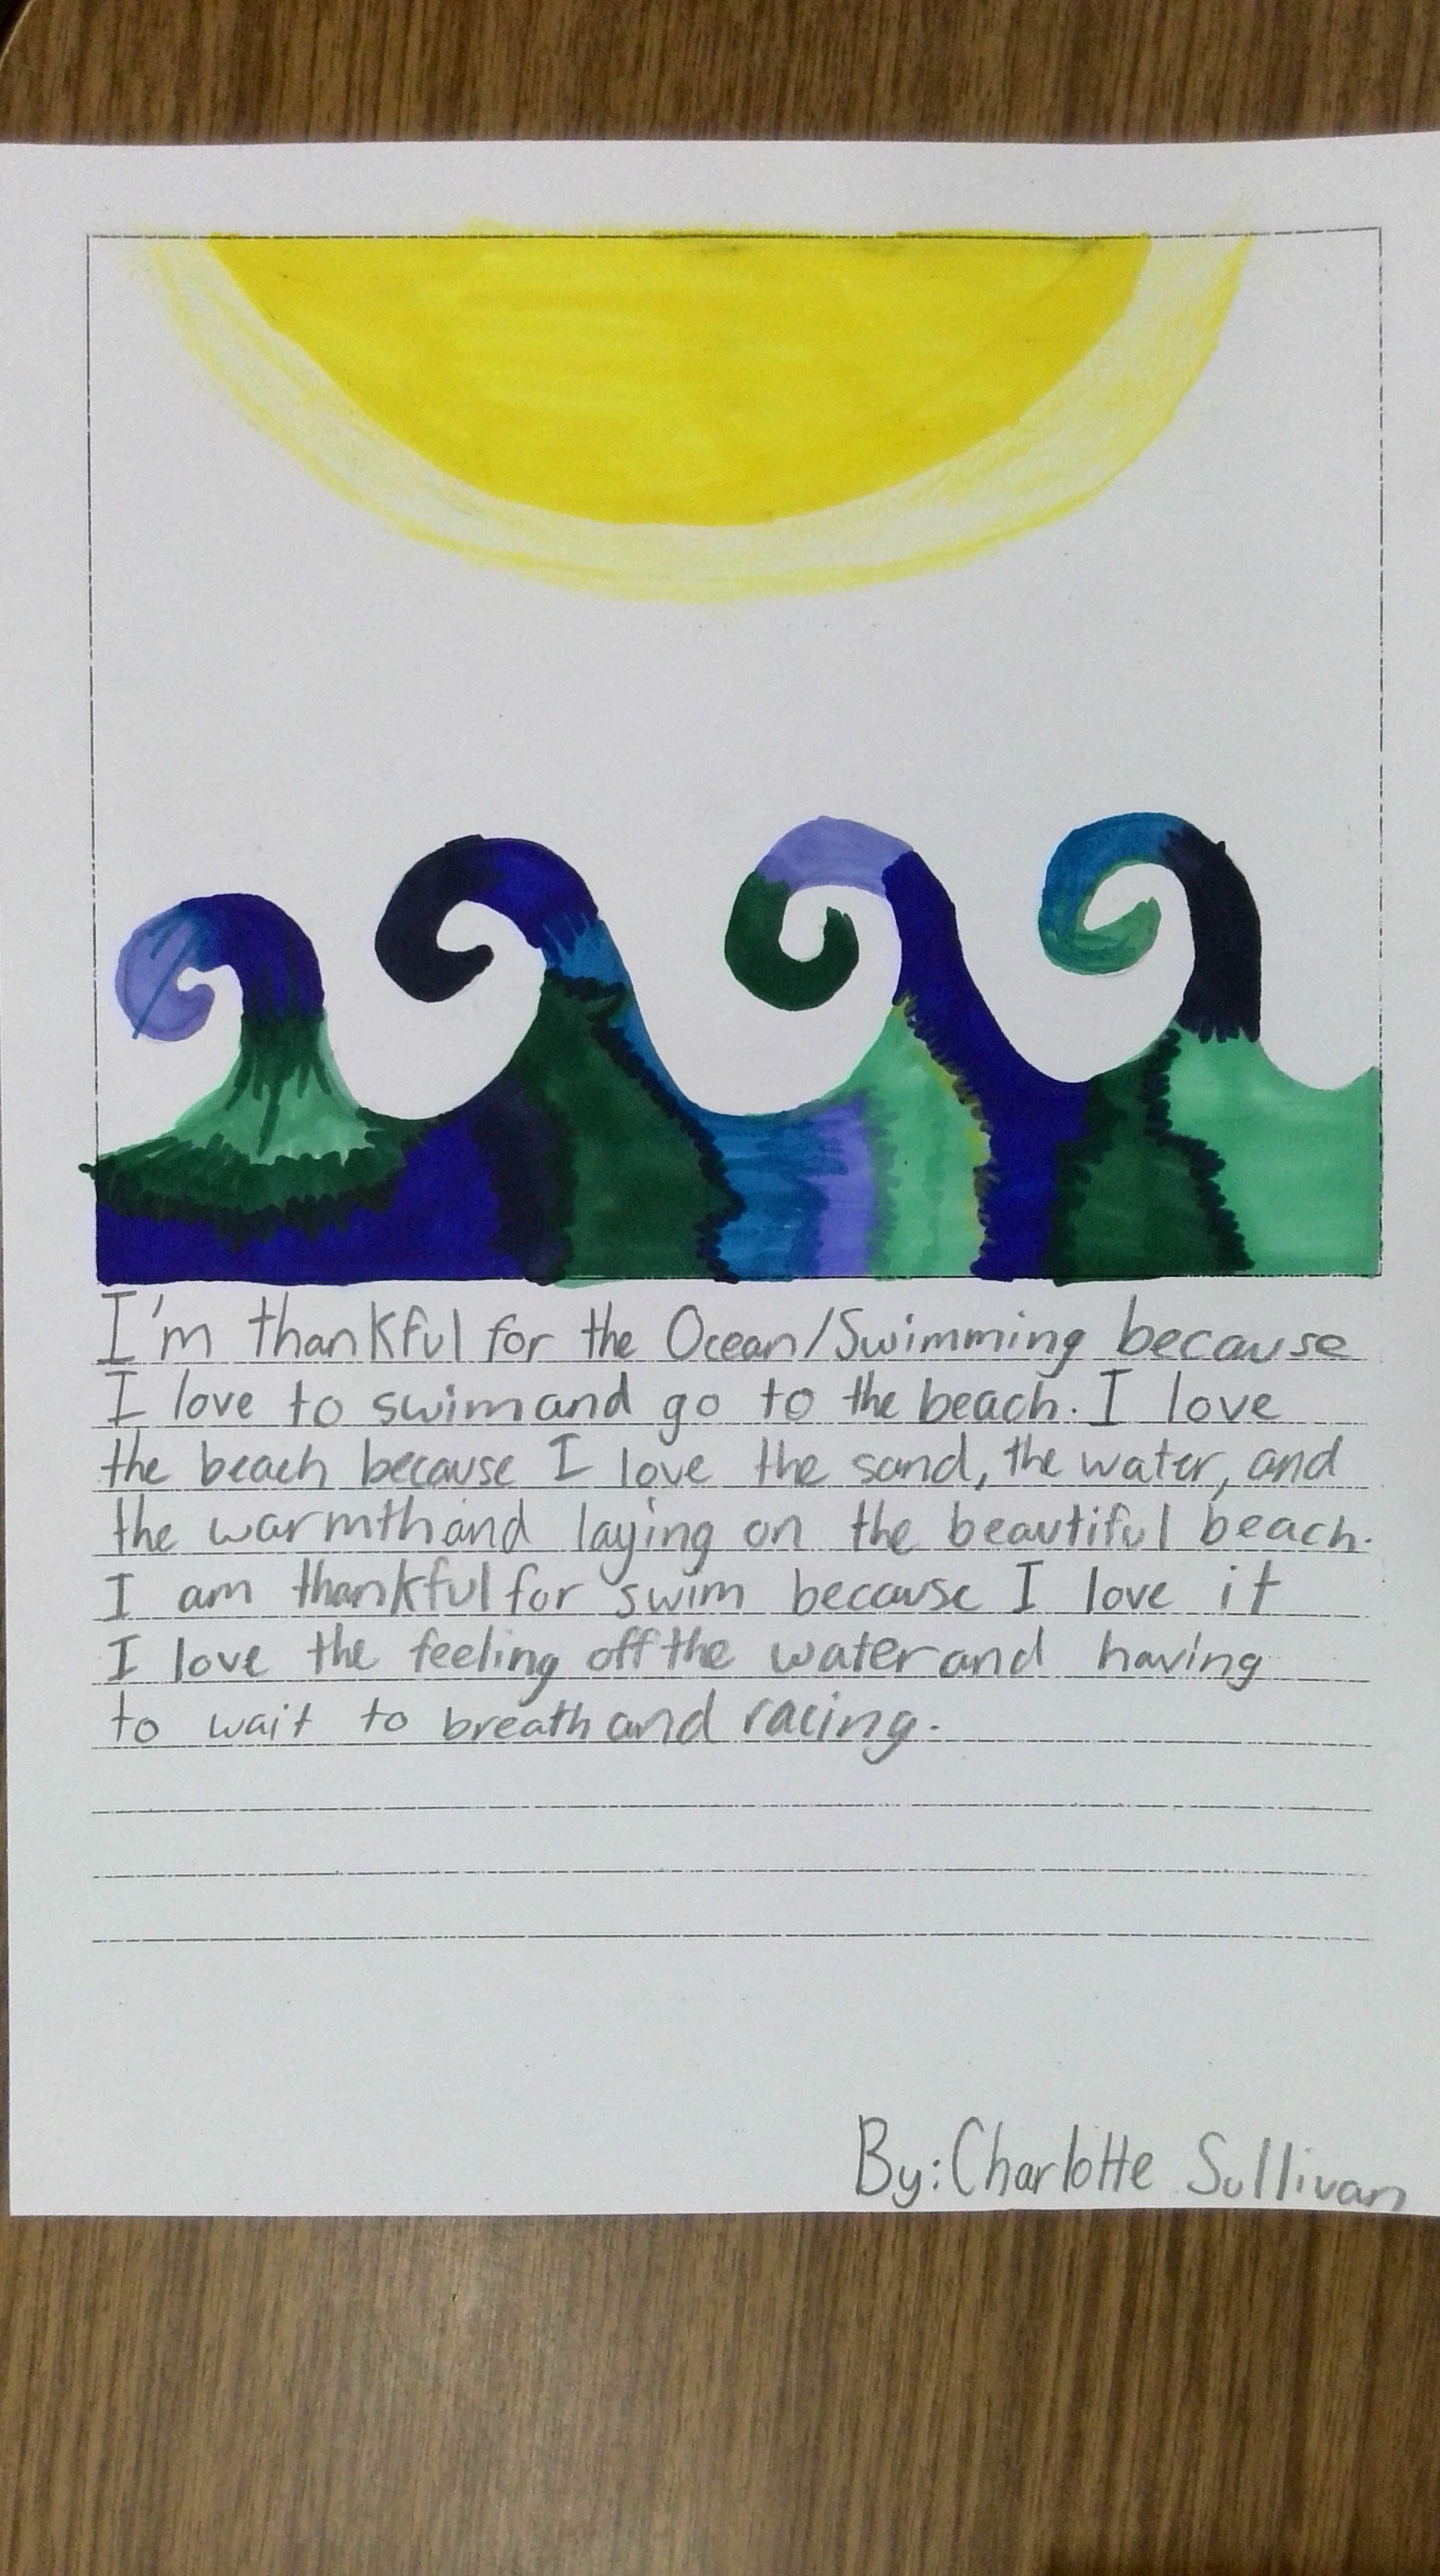 I'm thankful for the Ocean/Swimming because
I love to swim and go to the beach. I love
the beach because I love the sand, the water, and
the warmth and laying on the beautiful beach.
I am thankful for swim because I love it
I love the feeling off the water and having
to wait to breath and racing.
By: Charlotte Sullivan